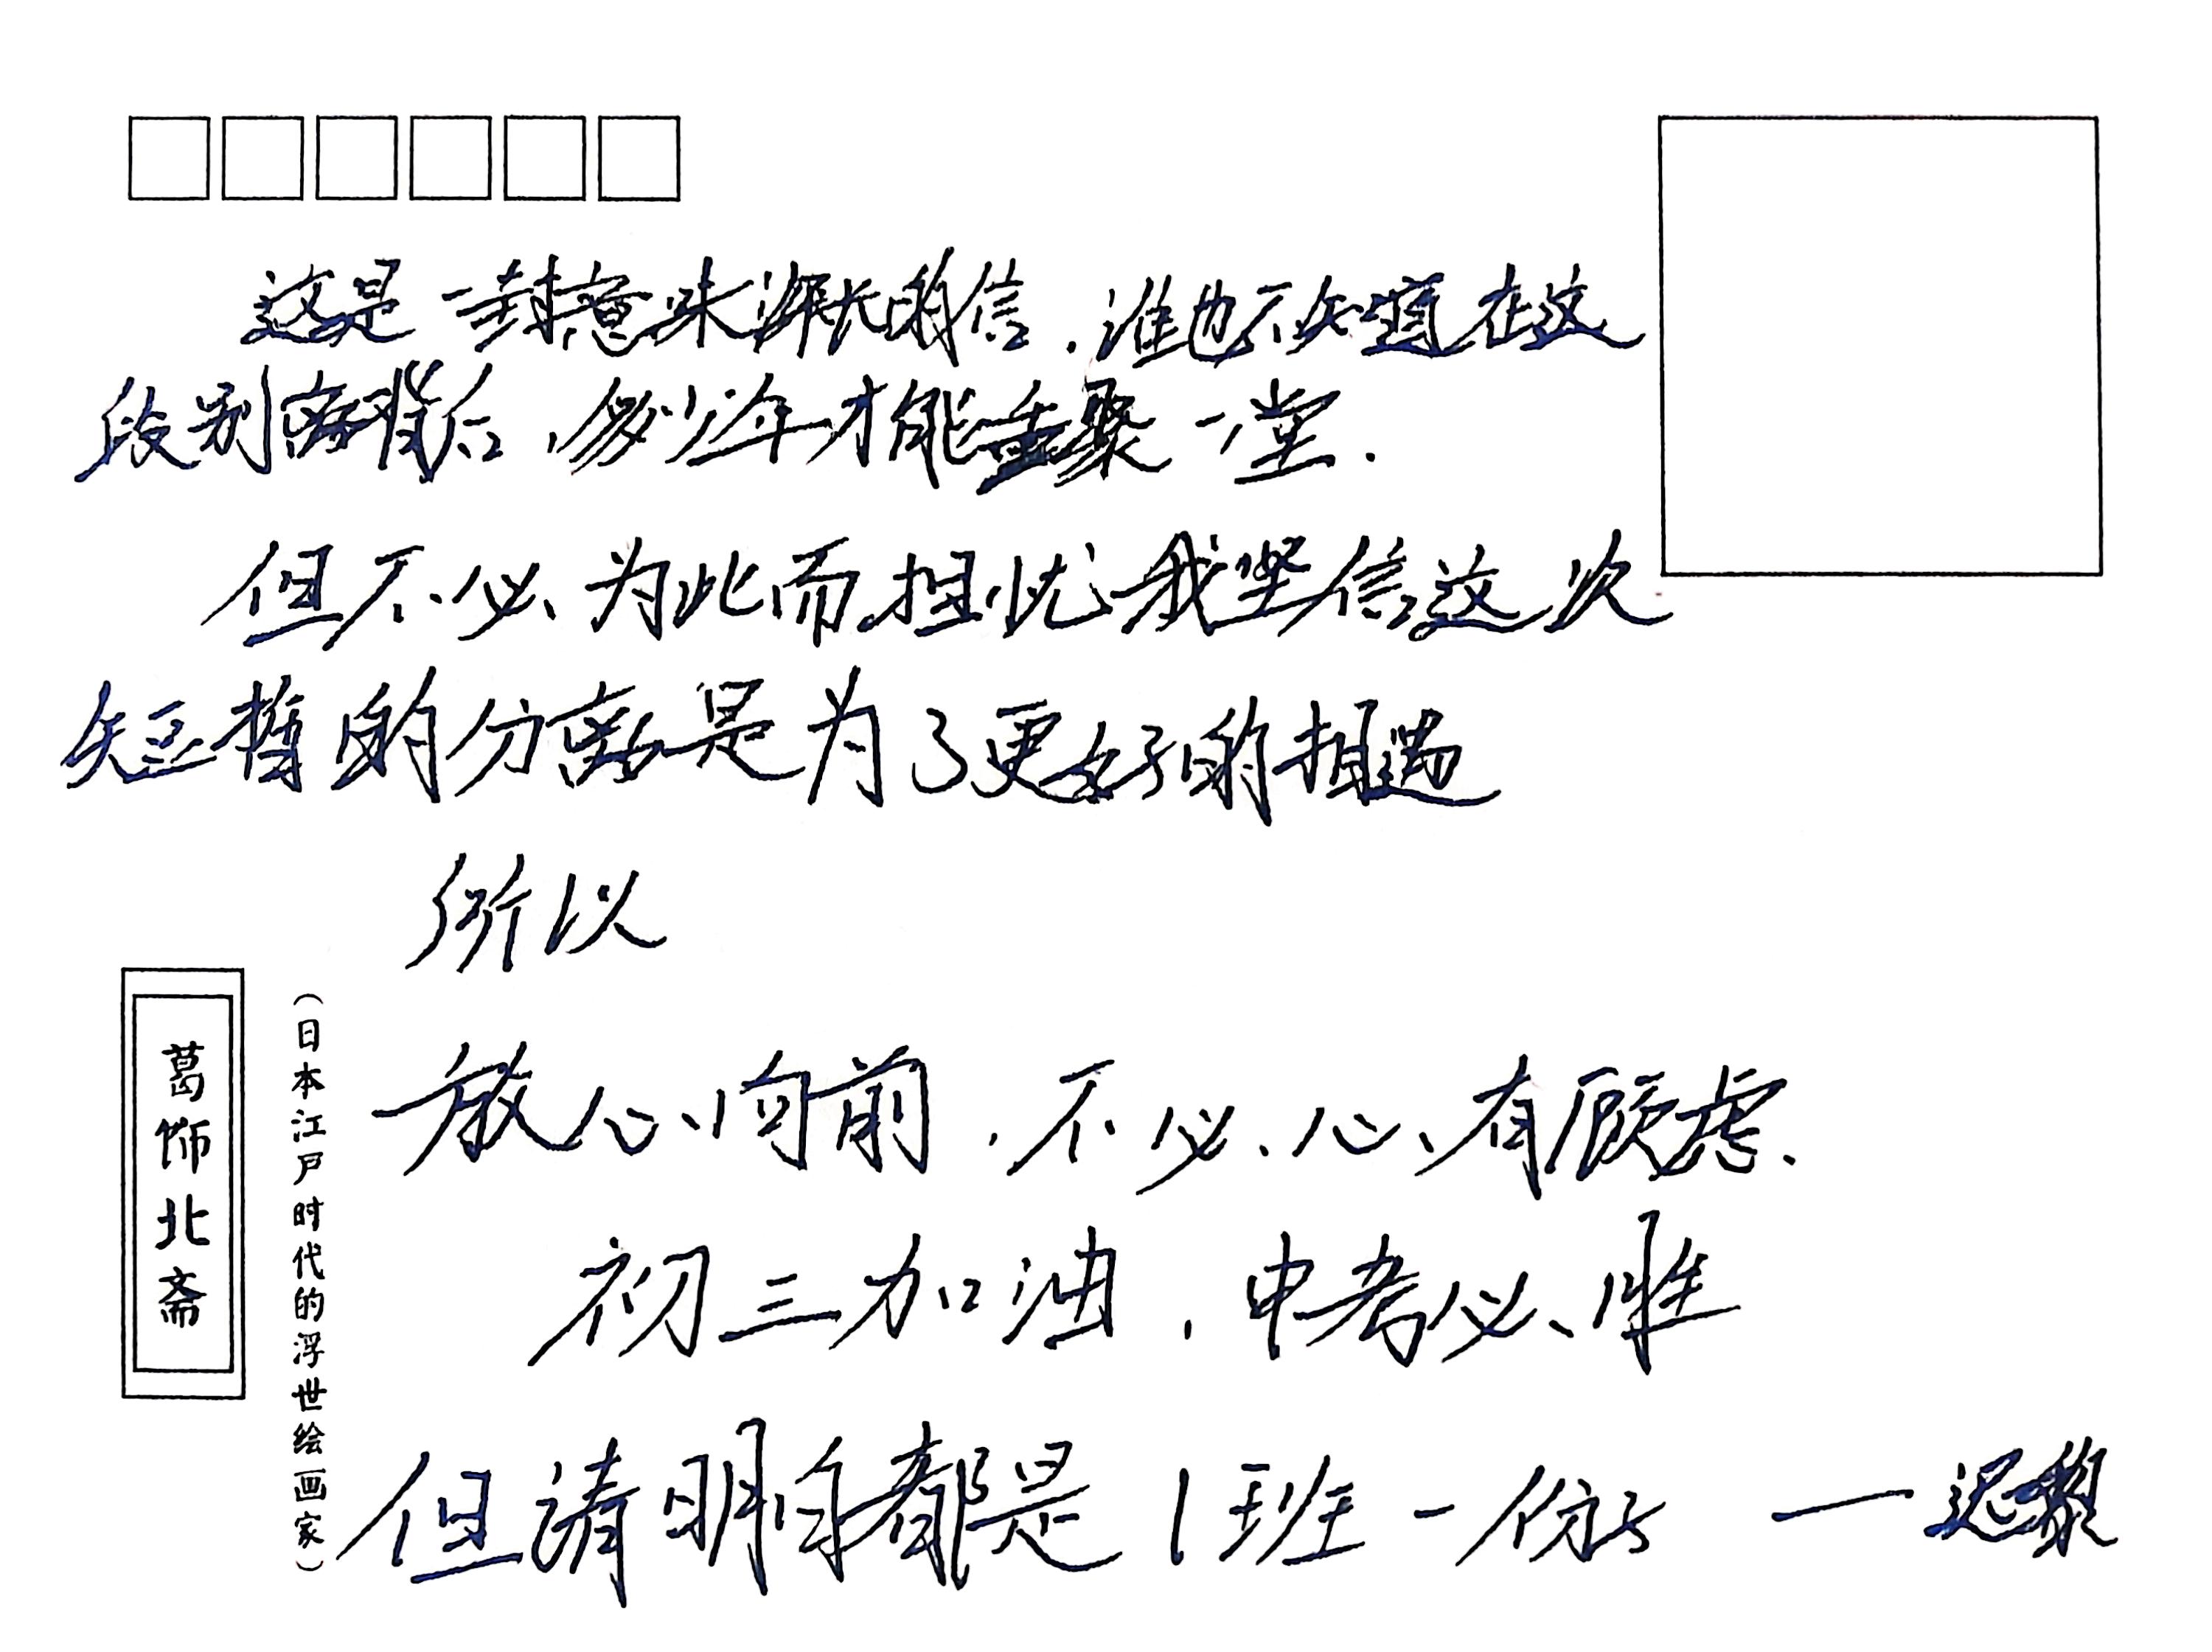 这是一封意味深长的信，谁也不知道在这
段别离背后，多少年才能重聚一堂.
但不必为此而担忧我坚信这次
短暂的分离是为了更好的相遇
所以
放心向前，不必心有顾虑.
初三加油，中考必胜
但请明白都是1班一份子 ——
葛饰北斋
（日本江户时代的浮世绘画家）